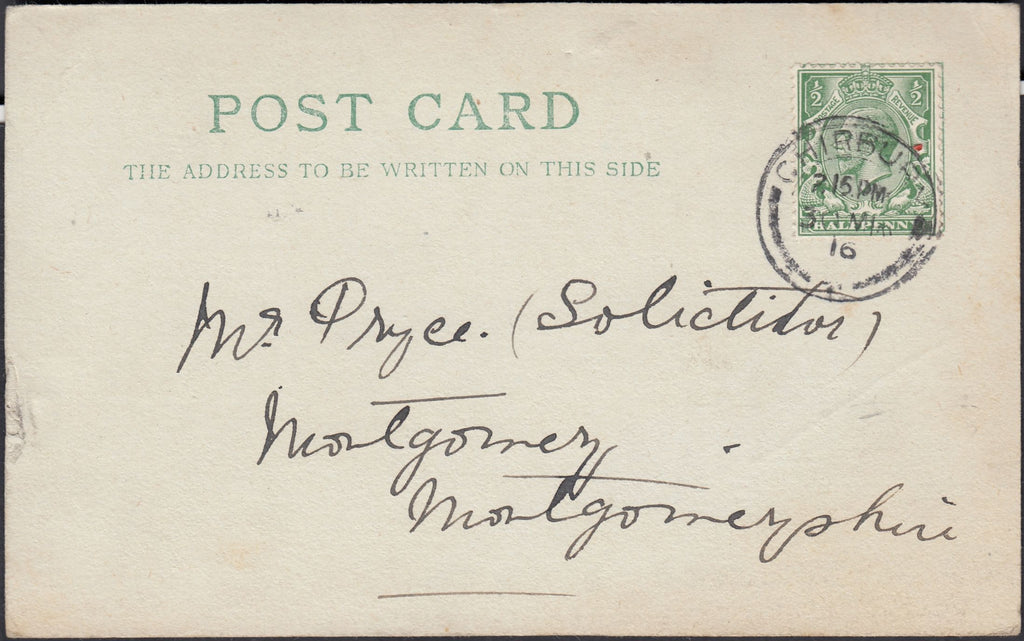 POST CARD
THE ADDRESS TO BE WRITTEN ON THIS SIDE
½ ½
POSTAGE REVENUE
HALFPENNY
CHIRBUR
15 PM
16
Mr. Pryce. (Solictidor)
Montgomery
Montgomeryshire